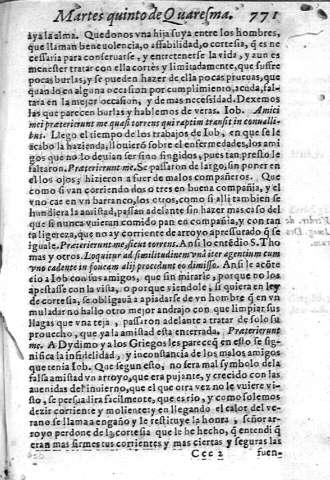 Martes quinto de Quaresma. 771
aya la alma. Quedonos vna hija suya entre los hombres,
que llaman beneuolencia, o affabilidad, o cortesia, q̃ es ne
cessaria para conseruarse, y entretenerse la vida, y aun es
menester tratar con ella cortes y limitadamente, que sufre
pocas burlas, y se pueden hazer de ella pocas prueuas, que
quando en alguna occasion por cumplimiento, acuda, fal-
tara en la mejor occasion, y de mas necessidad. Dexemos
las que parecen burlas y hablemos de veras. Iob. Amici
mei præterierunt me quasi torrens qui raptim transit in conualli-
bus. Llego el tiempo de los trabajos de Iob, en que se le
acabo la hazienda, llouierõ sobre el enfermedades, los ami
gos que no lo deuian ser sino fingidos, pues tan presto le
faltaron. Præterierunt me. Se passaron de largo, sin poner en
el los ojos; hizieron a fuer de malos compañeros. Que
como si van corriendo dos o tres en buena compañia, y el
vno cae en vn barranco, los otros, como si alli tambien se
hundiera la amistad, passan adelante sin hazer mas caso del
que si nunca vuieran comido pan en compañia, y con tan
ta ligereza, que no ay corriente de arroyo apressurado q̃ se
iguale. Præterierunt me, sicut torrens. Ansi lo entẽdio S. Tho
mas y otros. Loquitur ad similitudinem vnà iter agentium cum
vno cadente in foueam alij procedunt eo dimisso. Ansi le acõte
cio a Iob con sus amigos, que sin mirarle, porque no los
apestasse con la vista, o porque viendole, si quiera en ley
de cortesia, se obligauã a apiadarse de vn hombre q̃ en vn
muladar no hallo otro mejor andrajo con que limpiar sus
llagas que vna teja, passaron adelante a tratar de solo su
prouecho, que ya la amistad esta encerrada. Præterierunt
me. A Dydimo y a los Griegos les pareceq̃ en esso se sig-
nifica la infidelidad, y inconstancia de los malos amigos
que tenia Iob. Que segun esto, no sera mal symbolo de la
falsa amistad vn arroyo, que era pujante, y crecido con las
auenidas del inuierno, que el que otra vez no le vuiere vi-
sto, se persuadira facilmente, que es rio, y como solemos
dezir corriente y moliente: y en llegando el calor del ve-
rano se llama a engaño y le restituye la honra, señor ar-
royo perdone de la cortesia que le he hecho, q̃ entendi q̃
eran mas firmes tus corrientes y mas ciertas y seguras las
Ccc 2 fuen-